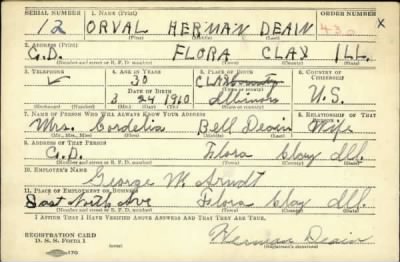 SERIAL NUMBER 1. NAME (Print) ORDER NUMBER
12 ORVAL HERMAN DEAIN 430 x
(First) (Middle) (Last)
2. ADDRESS (Print)
G.D. FLORA CLAY ILL.
(Number and street or R. F. D. number) (Town) (County) (State)
3. TELEPHONE 4. AGE IN YEARS 5. PLACE OF BIRTH 6. COUNTRY OF CITIZENSHIP
30 CLAY
(Town or county)
DATE OF BIRTH
3 24 1910 Illinois U.S.
(Mo.) (Day) (Yr.) (State or country)
7. NAME OF PERSON WHO WILL ALWAYS KNOW YOUR ADDRESS 8. RELATIONSHIP OF THAT PERSON
Mrs. Cordelia Bell Deain Wife
(Mr., Mrs., Miss) (First) (Middle) (Last)
9. ADDRESS OF THAT PERSON
G.D. Flora Clay Ill.
(Number and street or R. F. D. number) (Town) (County) (State)
10. EMPLOYER'S NAME
George W. Arndt
11. PLACE OF EMPLOYMENT OR BUSINESS
East North Ave Flora Clay Ill.
(Number and street or R. F. D. number) (Town) (County) (State)
I AFFIRM THAT I HAVE VERIFIED ABOVE ANSWERS AND THAT THEY ARE TRUE.
REGISTRATION CARD
D. S. S. Form 1 Herman Deain
(Registrant's signature)